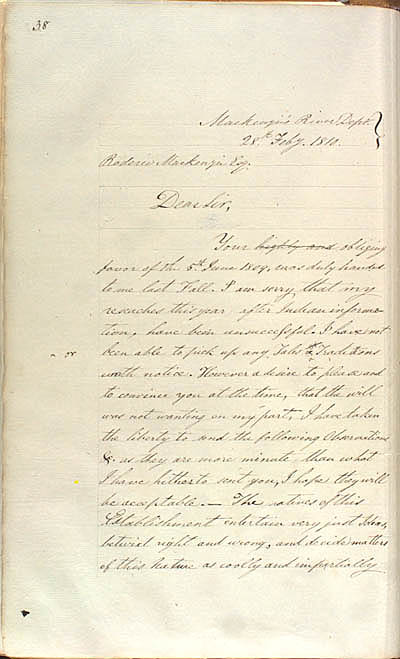 38
Mackenzie's River Dept. }
28th Feby. 1810.
Roderic Mackenzie Esq.
Dear Sir,
Your highly and obliging
favor of the 5th June 1809, was duly handed
to me last Fall. I am sorry that my
reseaches this year after Indian informa-
tion, have been unsuccessful. I have not
been able to pick up any Tales & Traditions
- or
worth notice. However a desire to please and
to convince you at the time, that the will
was not wanting on my part, I have taken
the liberty to send the following Observations
&c. as they are more minute than what
I have hitherto sent you, I hope they will
be acceptable. — The natives of this
Establishment entertain very just Ideas,
betwixt right and wrong, and decide matters
of this Nature as coolly and impartially